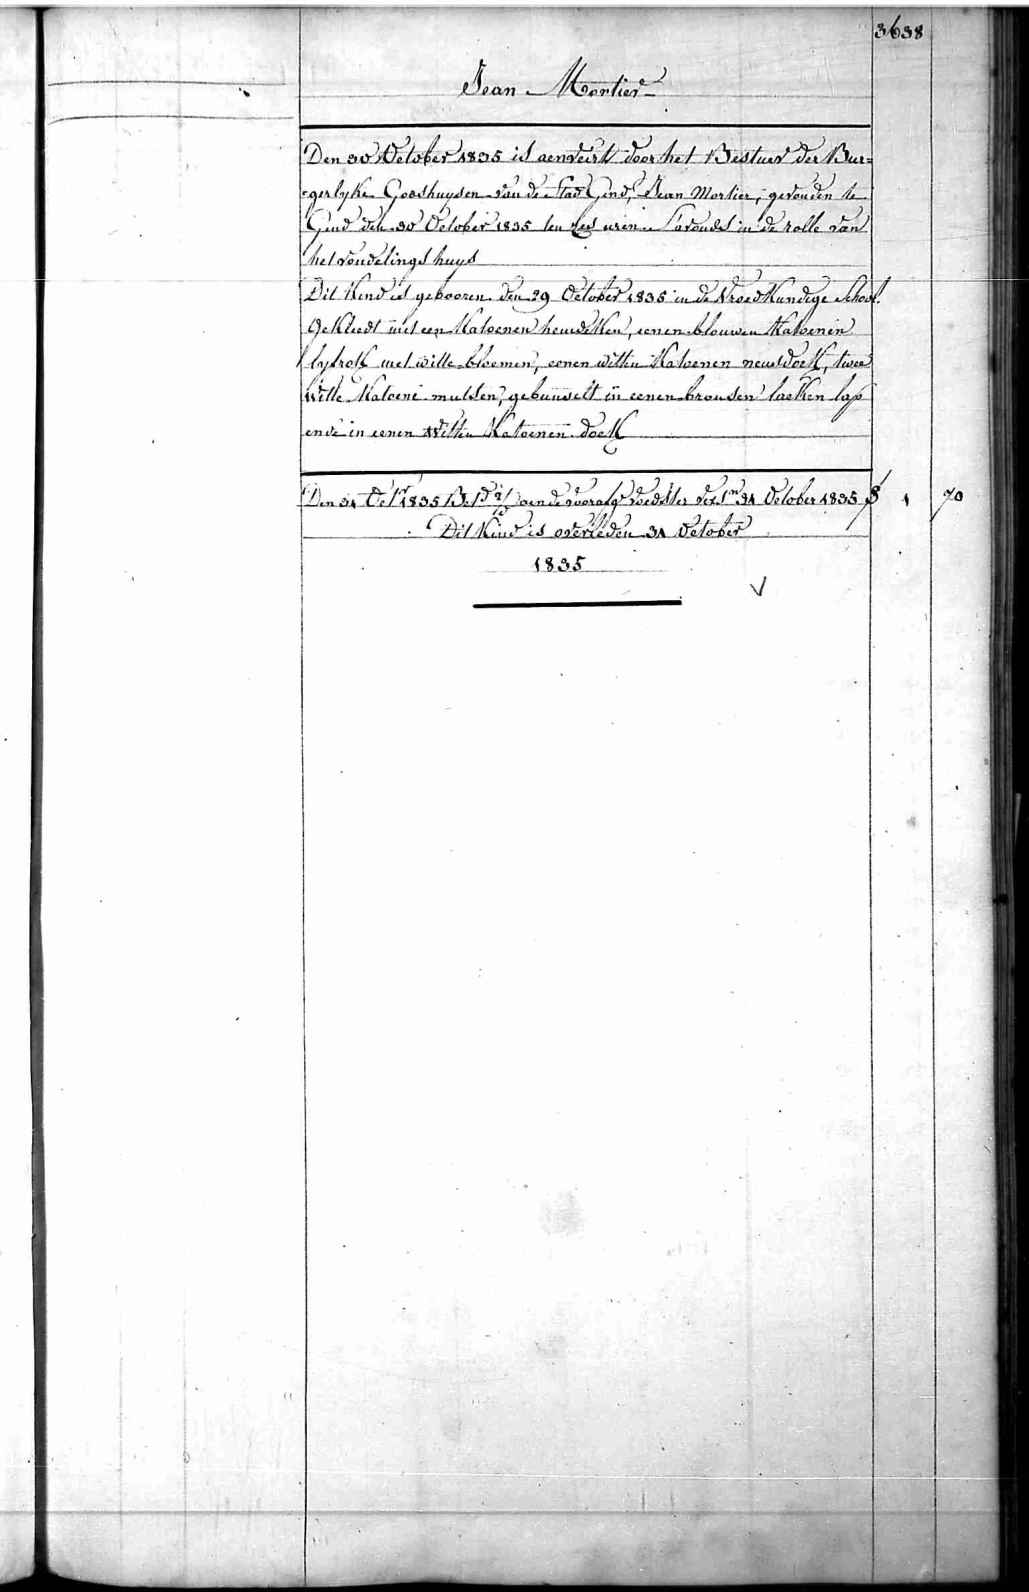 3638
Jean Mortier
Den 30 October 1835 is aenveirt door het Bestuer der Bur=
=gerlyke Godshuysen van de Stad Gend, Jean Mortier, gevonden te
Gend den 30 October 1835 ten zes uren s'avonds in de rolle van
het vondelingshuys
Dit Kind is gebooren den 29 October 1835 in de Vroedkundige School.
Gekleedt met een Katoenen hemdeken, eenen blouwen Katoenen
lyfrok met witte bloemen, eenen witten Katoenen neusdoek, twee
witte Katoene mutsen, gebunselt in eenen bronsen laeken lap
ende in eenen Witten Katoenen doek
Den 31 Oct.r 1835 aende voorafg.e voedster 31 October 1835 1 70
Dit Kind is overleden 31 October
1835